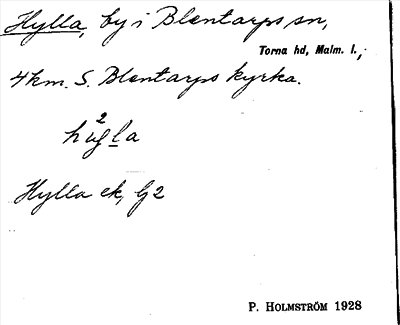 Hylla, by i Blentarps sn,
Torna hd, Malm. l.,
4 km. S. Blentarps kyrka.
Hylla ek, G2
P. HOLMSTRÖM 1928